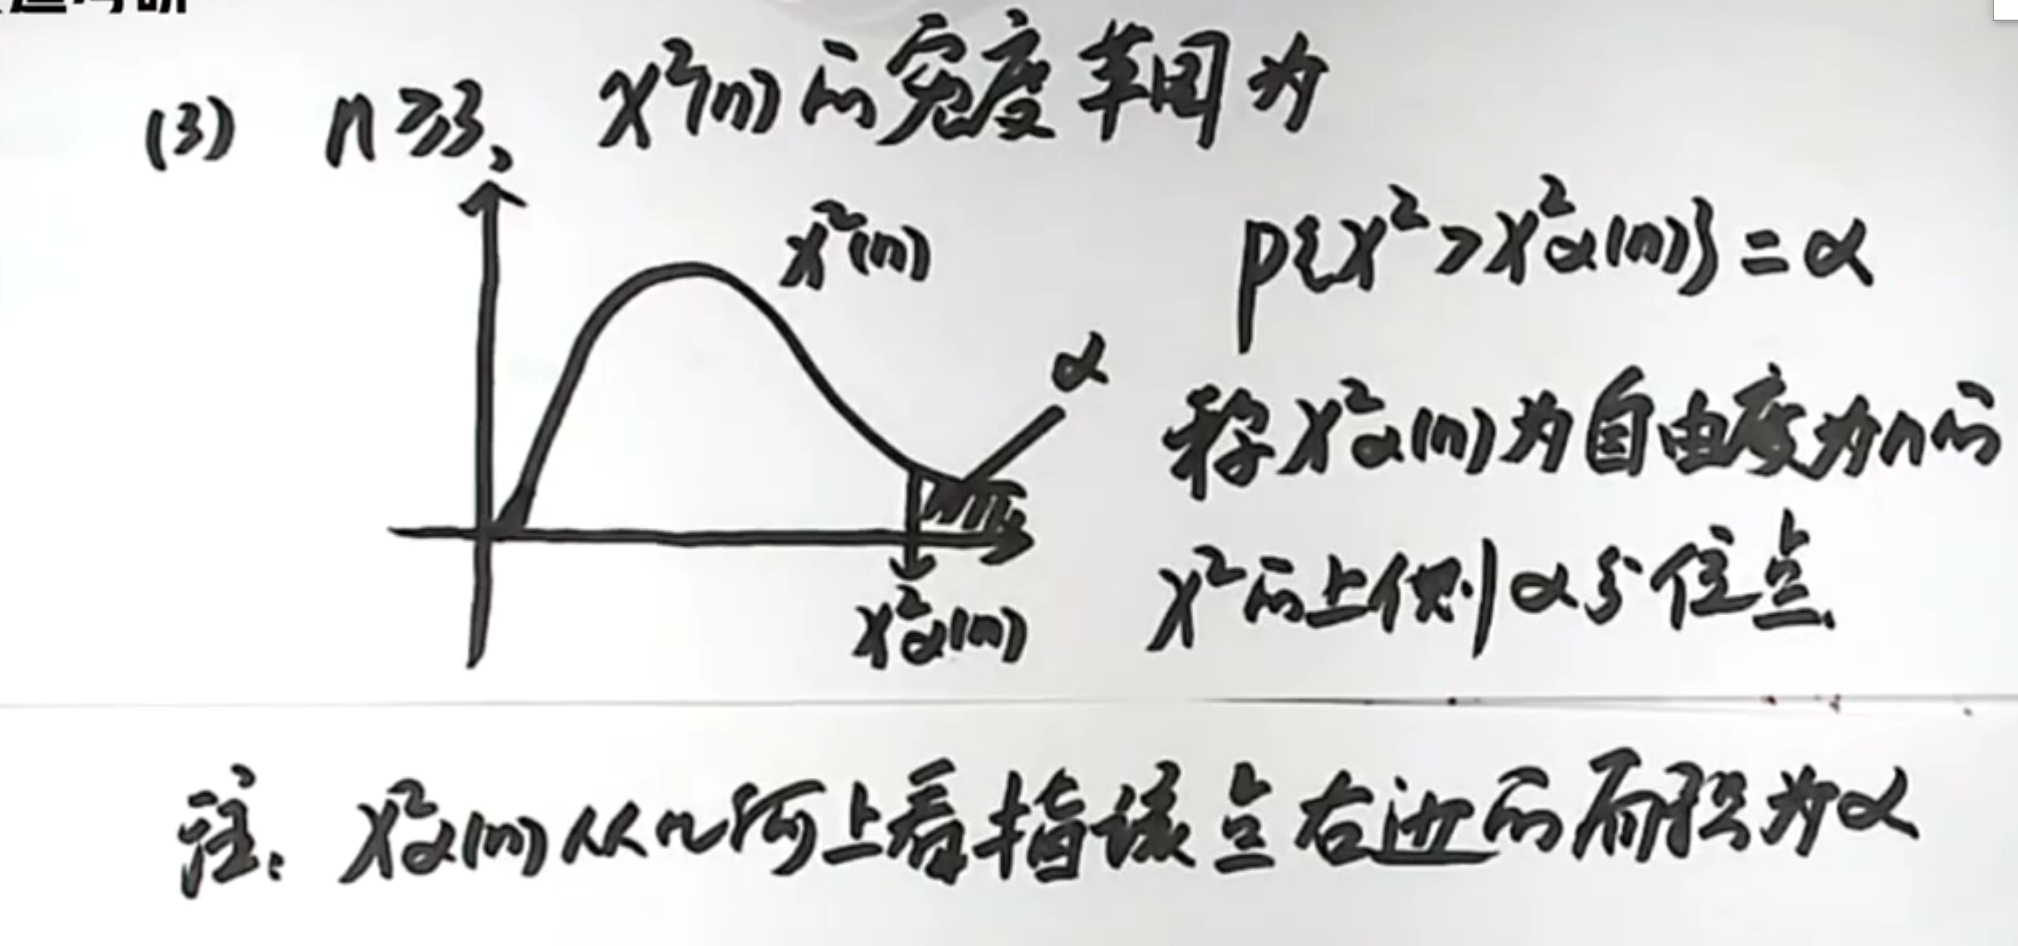 (3) n≥3, χ²(n)的密度草图为
χ²(n)
P{χ²>χ²α(n)}=α
α
称χ²α(n)为自由度为n的
χ²的上侧α分位点.
χ²α(n)
注: χ²α(n)从几何上看指该点右边的面积为α